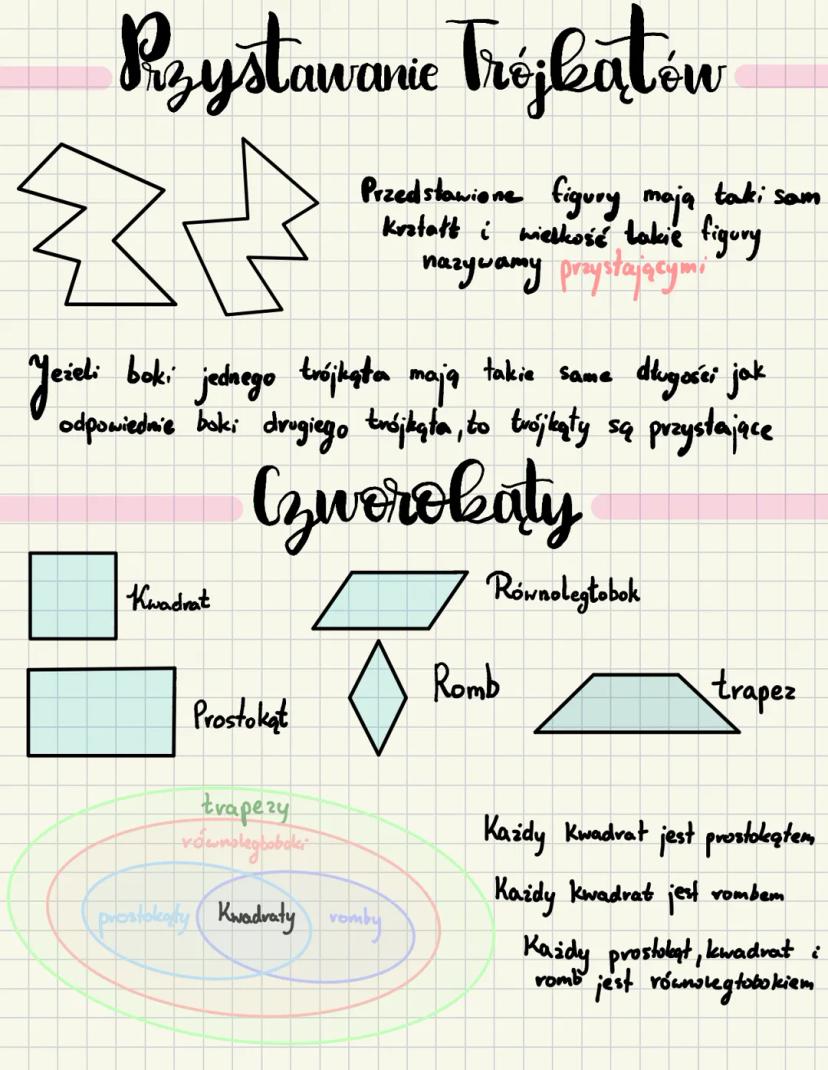 Przystawanie Trójkątów
Przedstawione figury mają taki sam
kształt i wielkość takie figury
nazywamy przystającymi
Jeżeli boki jednego trójkąta mają takie same długości jak
odpowiednie boki drugiego trójkąta, to trójkąty są przystające
Czworokąty
Kwadrat
Równoległobok
Prostokąt
Romb
trapez
trapezy
równoległoboki
prostokąty
Kwadraty
romby
Każdy kwadrat jest prostokątem
Każdy kwadrat jest rombem
Każdy prostokąt, kwadrat i
romb jest równoległobokiem